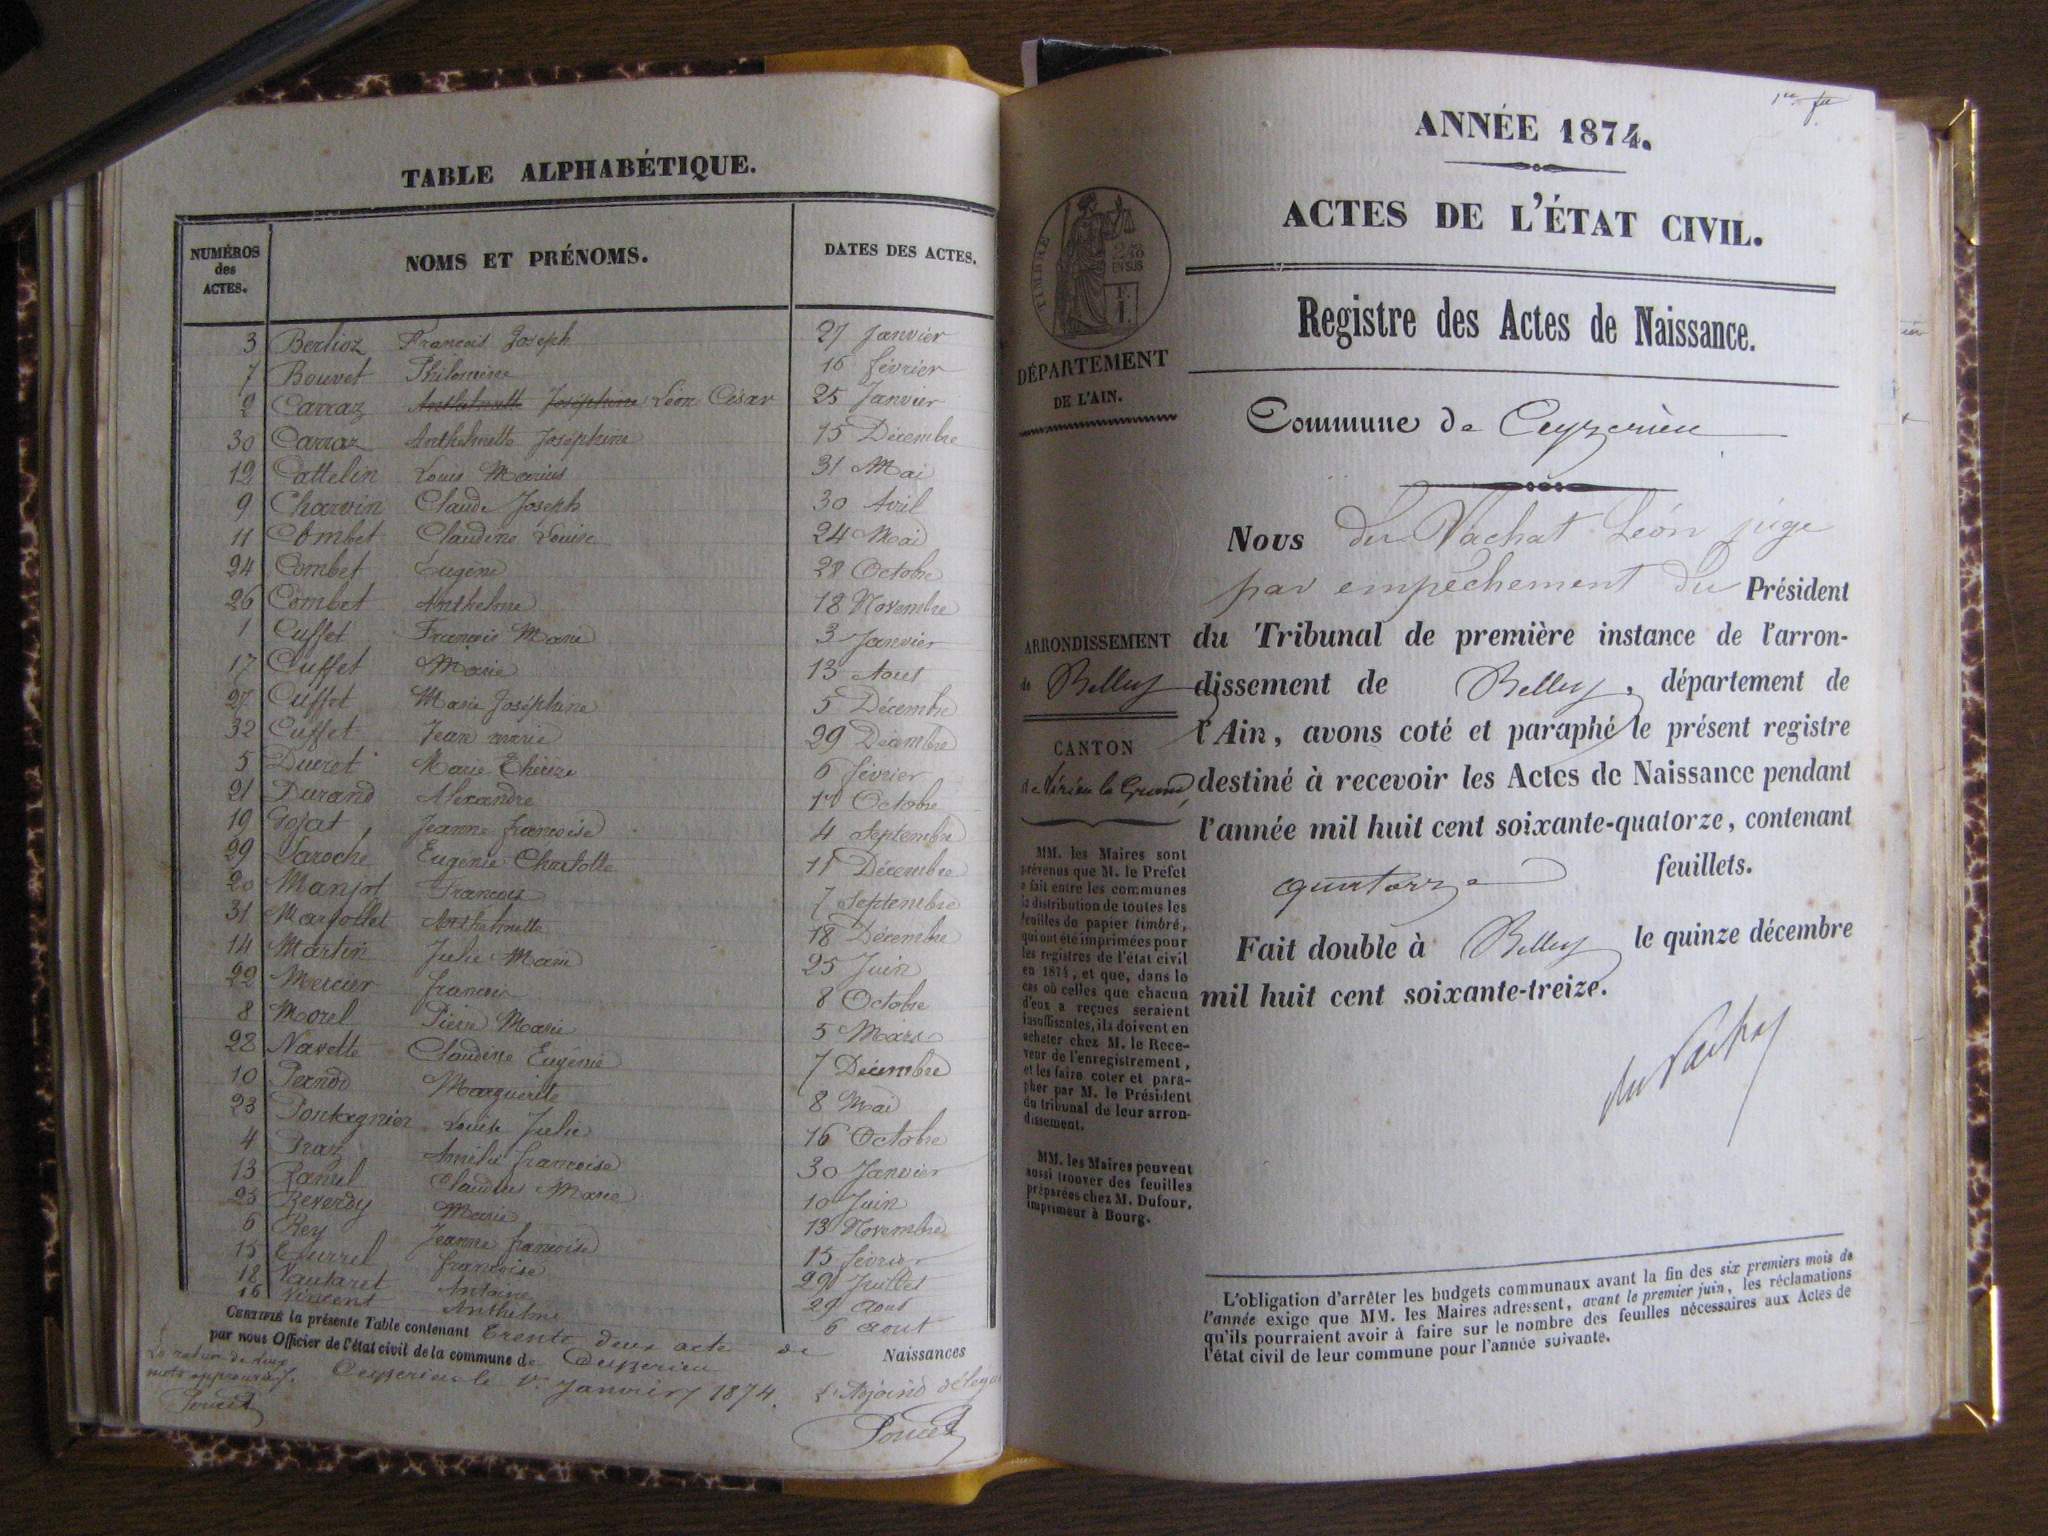 TABLE ALPHABÉTIQUE.
NUMÉROS des ACTES. NOMS ET PRÉNOMS. DATES DES ACTES.
3 Berlioz François Joseph 27 Janvier
7 Bouvet Philomine 16 février
2 Carraz Anthelmette Joséphine Léon César 25 Janvier
30 Carraz Anthelmette Joséphine 15 Décembre
12 Cattelin Louis Marius 31 Mai
9 Charvin Claude Joseph 30 Avril
11 Combet Claudine Louise 24 Mai
24 Combet Eugène 28 Octobre
26 Combet Anthelme 18 Novembre
1 Cuffet François Marie 3 Janvier
17 Cuffet Marie 13 Aout
27 Cuffet Marie Joséphine 5 Décembre
32 Cuffet Jean marie 29 Décembre
5 Ducret Marie Thérèze 6 février
21 Durand Alexandre Octobre
19 Gojat Jeanne françoise 4 Septembre
29 Laroche Eugénie Charlotte 11 Décembre
20 Manjot François 7 Septembre
31 Marjollet Anthelmette 18 Décembre
14 Martin Julie Marie 25 Juin
22 Mercier françois 8 Octobre
8 Morel Pierre Marie 5 Mars
28 Navette Claudine Eugénie 7 Décembre
10 Pernod Marguerite 8 Mai
23 Pontagnier Louise Julie 16 Octobre
4 Praz Amélie françoise 30 Janvier
13 Ramel Claudius Marie 10 Juin
25 Reverdy Marie 13 Novembre
6 Rey Jeanne françoise 15 février
15 françoise 29 Juillet
18 Vautaret Antoine 29 Aout
16 Vincent Anthelme 6 Aout
CERTIFIÉ la présente Table contenant Trente deux acte de Naissances
par nous Officier de l'état civil de la commune de Ceyzerieu
Ceyzerieu le 1er Janvier 1874. L'Adjoint délégué
La rature de deux
mots approuvée.
Poncet
Poncet
1er
ANNÉE 1874.
ACTES DE L'ÉTAT CIVIL.
Registre des Actes de Naissance.
TIMBRE
2/10 EN SUS
F. 1.
DÉPARTEMENT
DE L'AIN.
Commune de Ceyzerieu
Nous du Vachat Léon juge
par empêchement du Président
du Tribunal de première instance de l'arron-
dissement de Belley, département de
l'Ain, avons coté et paraphé le présent registre
destiné à recevoir les Actes de Naissance pendant
l'année mil huit cent soixante-quatorze, contenant
quatorze feuillets.
Fait double à Belley le quinze décembre
mil huit cent soixante-treize.
du Vachat
ARRONDISSEMENT
de Belley
CANTON
de Virieu le Grand
MM. les Maires sont
prévenus que M. le Préfet
a fait entre les communes
la distribution de toutes les
feuilles de papier timbré,
qui ont été imprimées pour
les registres de l'état civil
en 1874, et que, dans le
cas où celles que chacun
d'eux a reçues seraient
insuffisantes, ils doivent en
acheter chez M. le Rece-
veur de l'enregistrement,
et les faire coter et para-
pher par M. le Président
du tribunal de leur arron-
dissement.
MM. les Maires peuvent
aussi trouver des feuilles
préparées chez M. Dufour,
imprimeur à Bourg.
L'obligation d'arrêter les budgets communaux avant la fin des six premiers mois de
l'année exige que MM. les Maires adressent, avant le premier juin, les réclamations
qu'ils pourraient avoir à faire sur le nombre des feuilles nécessaires aux Actes de
l'état civil de leur commune pour l'année suivante.